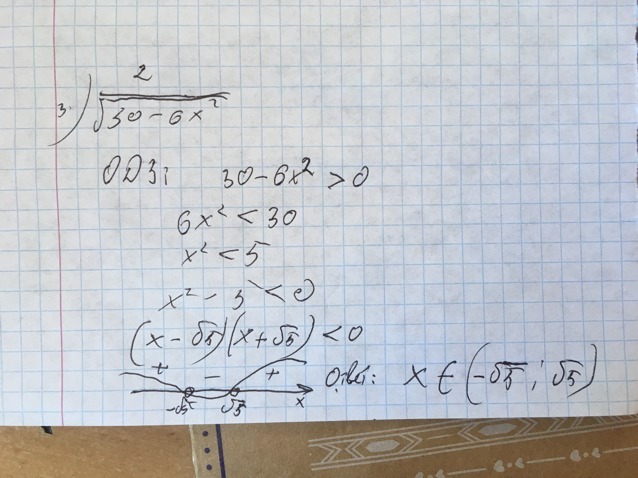 3.) 2/√(30-6x²)
ОДЗ: 30-6x² > 0
6x² < 30
x² < 5
x² - 5 < 0
(x - √5)(x + √5) < 0
+ - +
-√5 √5 x
Ответ: x ∈ (-√5; √5)